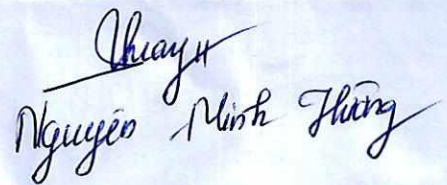 Nguyễn Minh Hùng